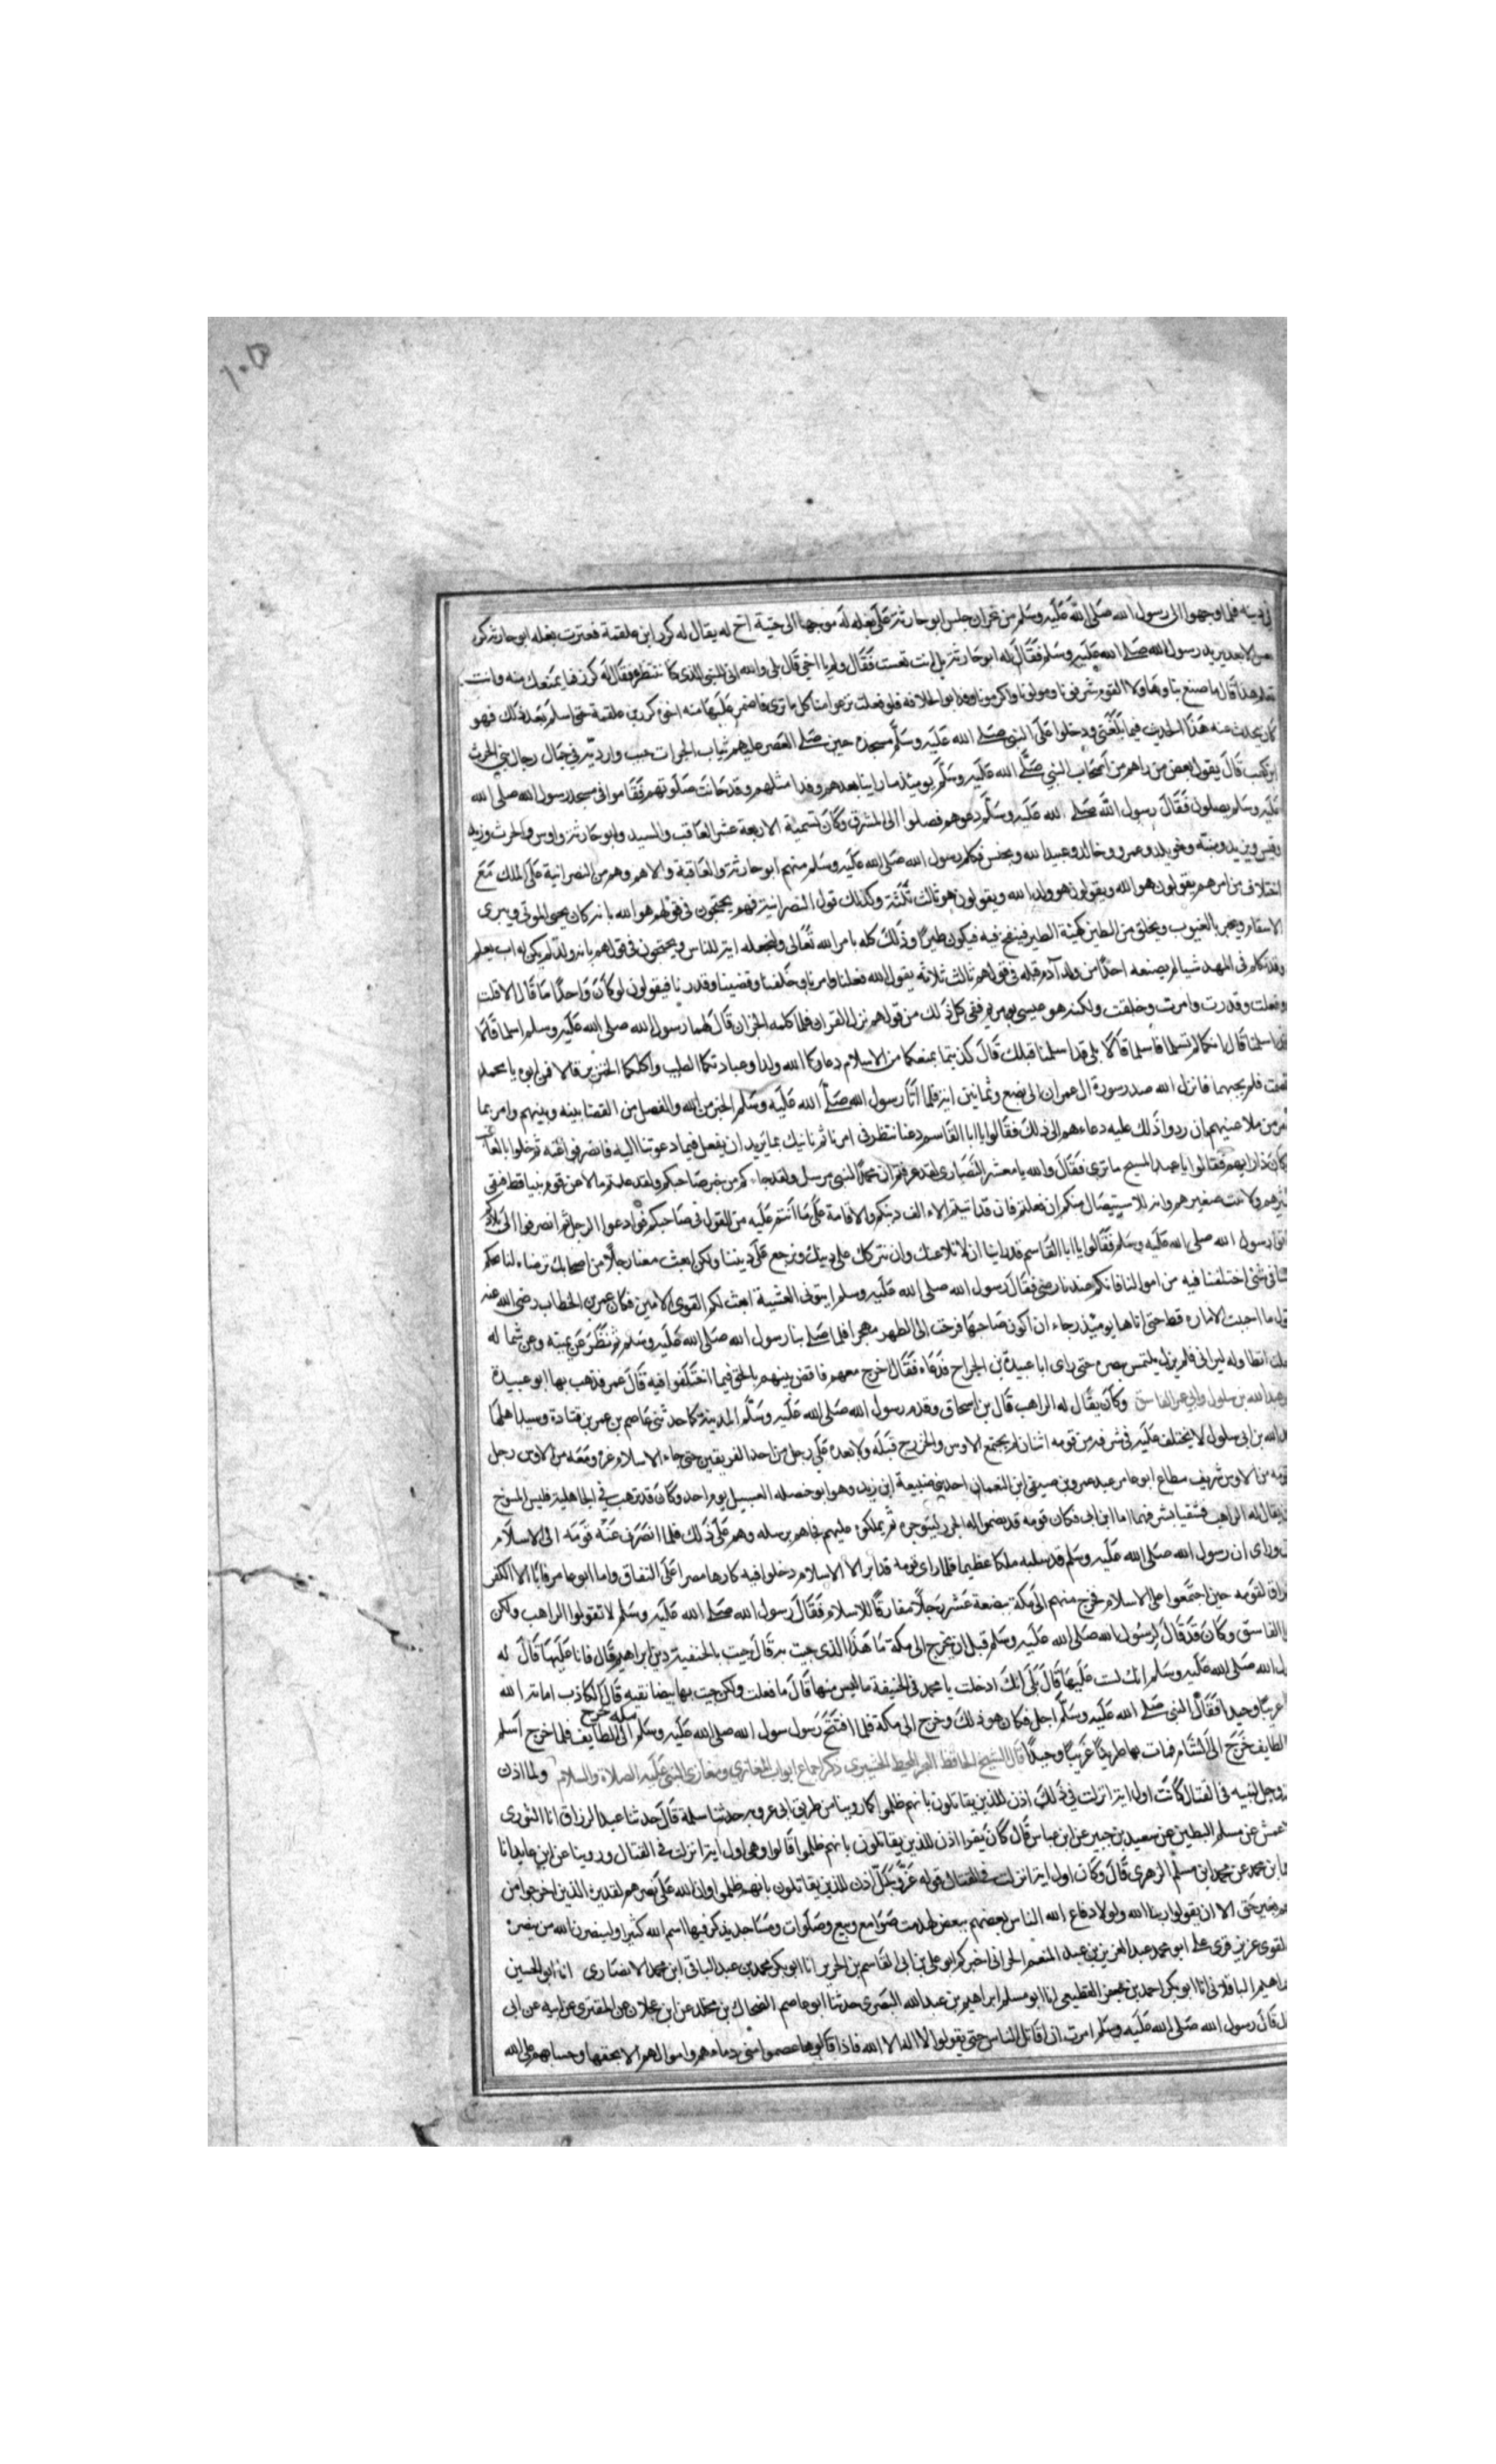 ١٠٥
في دينه فلما وجهوا الى رسول الله صلى الله عليه وسلم من نجران جلس ابو حارثة على بغله له موجها الى جنبه اخ له يقال له كرز ابن علقمة فعثرت بغله ابو حارثه كرز
تعس الابعد يريد رسول الله صلى الله عليه وسلم فقال له ابو حارثة بل انت تعست فقال ولم يا اخي قال بلى والله انه للنبي الذى كنا ننتظر فقال له كرز فما يمنعك منه وانت
تعلم هذا قال ما صنع بنا هاولا القوم شرفونا ومولونا واكرمونا وقد ابوا الا خلافه فلو فعلت نزعوا منا كل ما ترى فاضمر عليها منه اخوه كرز بن علقمة حتى اسلم بعد ذلك فهو
كان يحدث عنه هذا الحديث فيما بلغني ودخلوا على النبي صلى الله عليه وسلم مسجده حين صلى العصر عليهم ثياب الحبرات جبب وارديه في جمال رجال بني الحرث
ابن كعب قال يقول بعض من راهم من أصحاب النبي صلى الله عليه وسلم يوميذ ما راينا بعدهم وفدا مثلهم وقد حانت صلوتهم فقاموا في مسجد رسول الله صلى الله
عليه وسلم يصلون فقال رسول الله صلى الله عليه وسلم دعوهم فصلوا الى المشرق وكان تسمية الاربعة عشر العاقب والسيد وابو حارثه واوس والحرث وزيد
وقيس ويزيد ونبيه وخويلد وعمرو وخالد وعبد الله ويحنس فكلم رسول الله صلى الله عليه وسلم منهم ابو حارثة والعاقبة والايهم وهم من النصرانية على الملك مع
اختلاف من امرهم يقولون هو الله ويقولون هو ولد الله ويقولون هو ثالث ثلثة وكذلك قول النصرانية فهم يحتجون في قولهم هو الله بانه كان يحيى الموتى ويبرى
الاسقام ويخبر بالغيوب ويخلق من الطين كهيئة الطير فينفخ فيه فيكون طيرا وذلك كله بامر الله تعالى ولنجعله اية للناس ويحتجون في قولهم بانه ولد لم يكن له اب يعلم
وقد تكلم فى المهد شيا لم يصنعه احدا من ولد آدم قبله فى قولهم ثالث ثلاثه بقول الله فعلنا وامرنا وخلقنا وقضينا وقدرنا فيقولون لو كان واحدا ما قال الا قلت
وفعلت وقدرت وامرت وخلقت ولكنه هو وعيسى ومريم ففى كل ذلك من قولهم نزل القران فلما كلمه الحبران قال لهما رسول الله صلى الله عليه وسلم اسلما قالا
قد اسلمنا قال انكما لم تسلما فاسلما قالا بلى قد اسلمنا قبلك قال كذبتما يمنعكما من الاسلام دعاوكما لله ولدا وعبادتكما الصليب واكلكما الخنزير قالا فمن ابوه يا محمد
فصمت فلم يجبهما فانزل الله صدر سورة ال عمران الى بضع وثمانين اية فلما أتا رسول الله صلى الله عليه وسلم الخبر من الله والفصل من القضا بينه وبينهم وامر بما
امر من ملاعنتهم ان ردوا ذلك عليه دعاهم الى ذلك فقالوا يا ابا القاسم دعنا ننظر فى امرنا ثم ناتيك بما نريد ان نفعل فيما دعوتنا اليه فانصرفوا عنه ثم خلوا بالعاقب
وكان ذا رايهم فقالوا يا عبد المسيح ما ترى فقال والله يا معشر النصارى لقد عرفتم ان محمدا النبى مرسل ولقد جاءكم من خبر صاحبكم ولقد علمتم ما لاعن قوم نبيا قط فبقى
كبيرهم ولا نبت صغيرهم وانه للاستيصال منكم ان فعلتم فان قد ابيتم الا الف دينكم والاقامة على ما أنتم عليه من القول فى صاحبكم فوادعوا الرجل ثم انصرفوا الى بلادكم
فاتوا رسول الله صلى الله عليه وسلم فقالوا يا ابا القاسم قد راينا ان لا نلاعنك وان نتركك على دينك ونرجع على ديننا ولكن ابعث معنا رجلا من اصحابك ترضاه لنا يحكم
بيننا فى شئ اختلفنا فيه من اموالنا فانكم عندنا رضى فقال رسول الله صلى الله عليه وسلم ايتونى العشية ابعث لكم القوى الامين فكان عمر بن الخطاب رضي الله عنه
يقول ما احببت الاماره قط حبى اياها يوميذ رجاء ان اكون صاحبها فرحت الى الظهر مهجرا فلما صلى بنا رسول الله صلى الله عليه وسلم ثم نظر عن يمينه وعن شماله
فجعلت اتطاول له ليرانى فلم يزل يلتمس بصره حتى راى ابا عبيدة بن الجراح فدعاه فقال اخرج معهم فاقض بينهم بالحق فيما اختلفوا فيه قال عمر فذهب بها ابو عبيدة
عبد الله بن سلول وابى عمر الفاسق وكان يقال له الراهب قال بن اسحاق وقدم رسول الله صلى الله عليه وسلم المدينة كما حدثنى عاصم بن عمر بن قتادة وسيد اهلها
عبد الله بن ابى سلول لا يختلف عليه فى شرفه من قومه اثنان لم يجتمع الاوس والخزرج قبله ولا بعده على رجل من احد الفريقين حتى جاء الاسلام غيره ومعه من الاوس رجل
قومه من الاوس شريف مطاع ابو عامر عبد عمرو بن صيفى ابن النعمان احد بنى ضبيعة ابن زيد وهو ابو حنظله الغسيل يوم احد وكان قد ترهب في الجاهلية فلبس المسوح
فكان يقال له الراهب فشقيا بشرفهما اما ابن ابى فكان قومه قد نظموا له الخرز ليتوجوه ثم يملكوه عليهم فجاهم برسله وهم على ذلك فلما انصرف عنه قومه الى الاسلام
ضغن وراى ان رسول الله صلى الله عليه وسلم قد سلبه ملكا عظيما فلما راى قومه قد ابو الا الاسلام دخل فيه كارها مصرا على النفاق واما ابو عامر فابا الا الكفر
والفراق لقومه حين اجتمعوا على الاسلام فخرج منهم الى مكة ببضعة عشر رجلا مفارقا للاسلام فقال رسول الله صلى الله عليه وسلم لا تقولوا الراهب ولكن
قولوا الفاسق وكان قد قال لرسول الله صلى الله عليه وسلم قبل ان يخرج الى مكة ما هذا الذى جيت به قال جيت بالحنفية دين ابراهيم قال فانا عليها قال له
رسول الله صلى الله عليه وسلم انك لست عليها قال بلى انك ادخلت يا محمد فى الحنيفة ما ليس منها قال ما فعلت ولكن جيت بها بيضا نقيه قال الكاذب اماته الله
غريبا وحيدا فقال النبي صلى الله عليه وسلم اجل فكان هو ذلك وخرج الى مكة فلما افتتح رسول الله صلى الله عليه وسلم مكه خرج الى الطايف فلما خرج أسلم
الطايف خرج الى الشام فمات بها طريدا غريبا وحيدا قال الشيخ الحافظ ذكر اجماع ابواب المغازى ومغازى النبى عليه الصلاة والسلام ولما اذن
عز وجل لنبيه فى القتال كانت اول اية انزلت في ذلك اذن للذين يقاتلون بانهم ظلموا كما روينا من طريق ابى عروبه حدثنا سلمة قال حدثنا عبد الرزاق انا الثورى
الاعمش عن مسلم البطين عن سعيد بن جبير عن ابن عباس قال كان يقرا اذن للذين يقاتلون بانهم ظلموا قالوا وهى اول اية انزلت فى القتال وروينا عن ابن عايد انا
محمد عن محمد ابن مسلم الزهرى قال وكان اول اية انزلت في القتال قوله عز وجل اذن للذين يقاتلون بانهم ظلموا وان الله على نصرهم لقدير الذين اخرجوا من
ديارهم بغير حق الا ان يقولوا ربنا الله ولولا دفاع الله الناس بعضهم ببعض لهدمت صوامع وبيع وصلوات ومساجد يذكر فيها اسم الله كثيرا ولينصرن الله من ينصره
لقوى عزيز قرى على ابو محمد عبد العزيز بن عبد المنعم الحرانى اخبركم ابو على بن ابى القاسم بن الخريف انا ابو بكر محمد بن عبد الباقى ابن محمد الانصارى انا ابو الحسين
ابراهيم الباقلانى انا ابو بكر احمد بن جعفر القطيعى انا ابو مسلم ابراهيم بن عبد الله البصرى حدثنا ابو عاصم الضحاك بن مخلد عن ابن عجلان عن المقبرى عن ابيه عن ابى
قال رسول الله صلى الله عليه وسلم امرت ان اقاتل الناس حتى يقولوا لا اله الا الله فاذا قالوها عصموا منى دماءهم واموالهم الا بحقها وحسابهم على الله